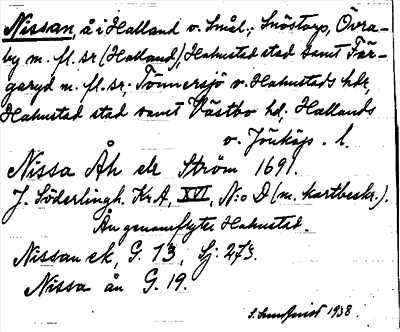 Nissan, å i Halland o. Smål.; Snöstorp, Övra-
by m. fl. sr (Halland), Halmstad stad samt Fär-
garyd m. fl. sr; Tönnersjö o. Halmstads hdr,
Halmstad stad samt Västbo hd, Hallands
o. Jönköp. l.
Nissa Åh elr Ström 1691.
J. Söderlingh. Kr A, XVI, N:o D (m. kartbeskr.).
Ån genomflyter Halmstad.
Nissan ek, G. 13, Lj. 273.
Nissa ån G. 19.
S. Sundquist 1938.